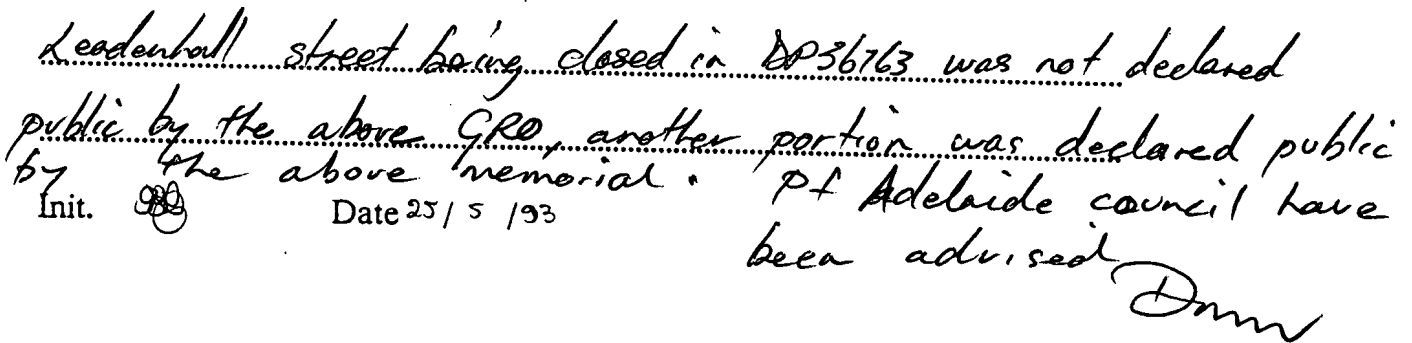 Leadenhall street being closed in DP36763 was not declared
public by the above GRO, another portion was declared public
by the above memorial. Pt Adelaide council have
Init. Date 25/5/93
been advised